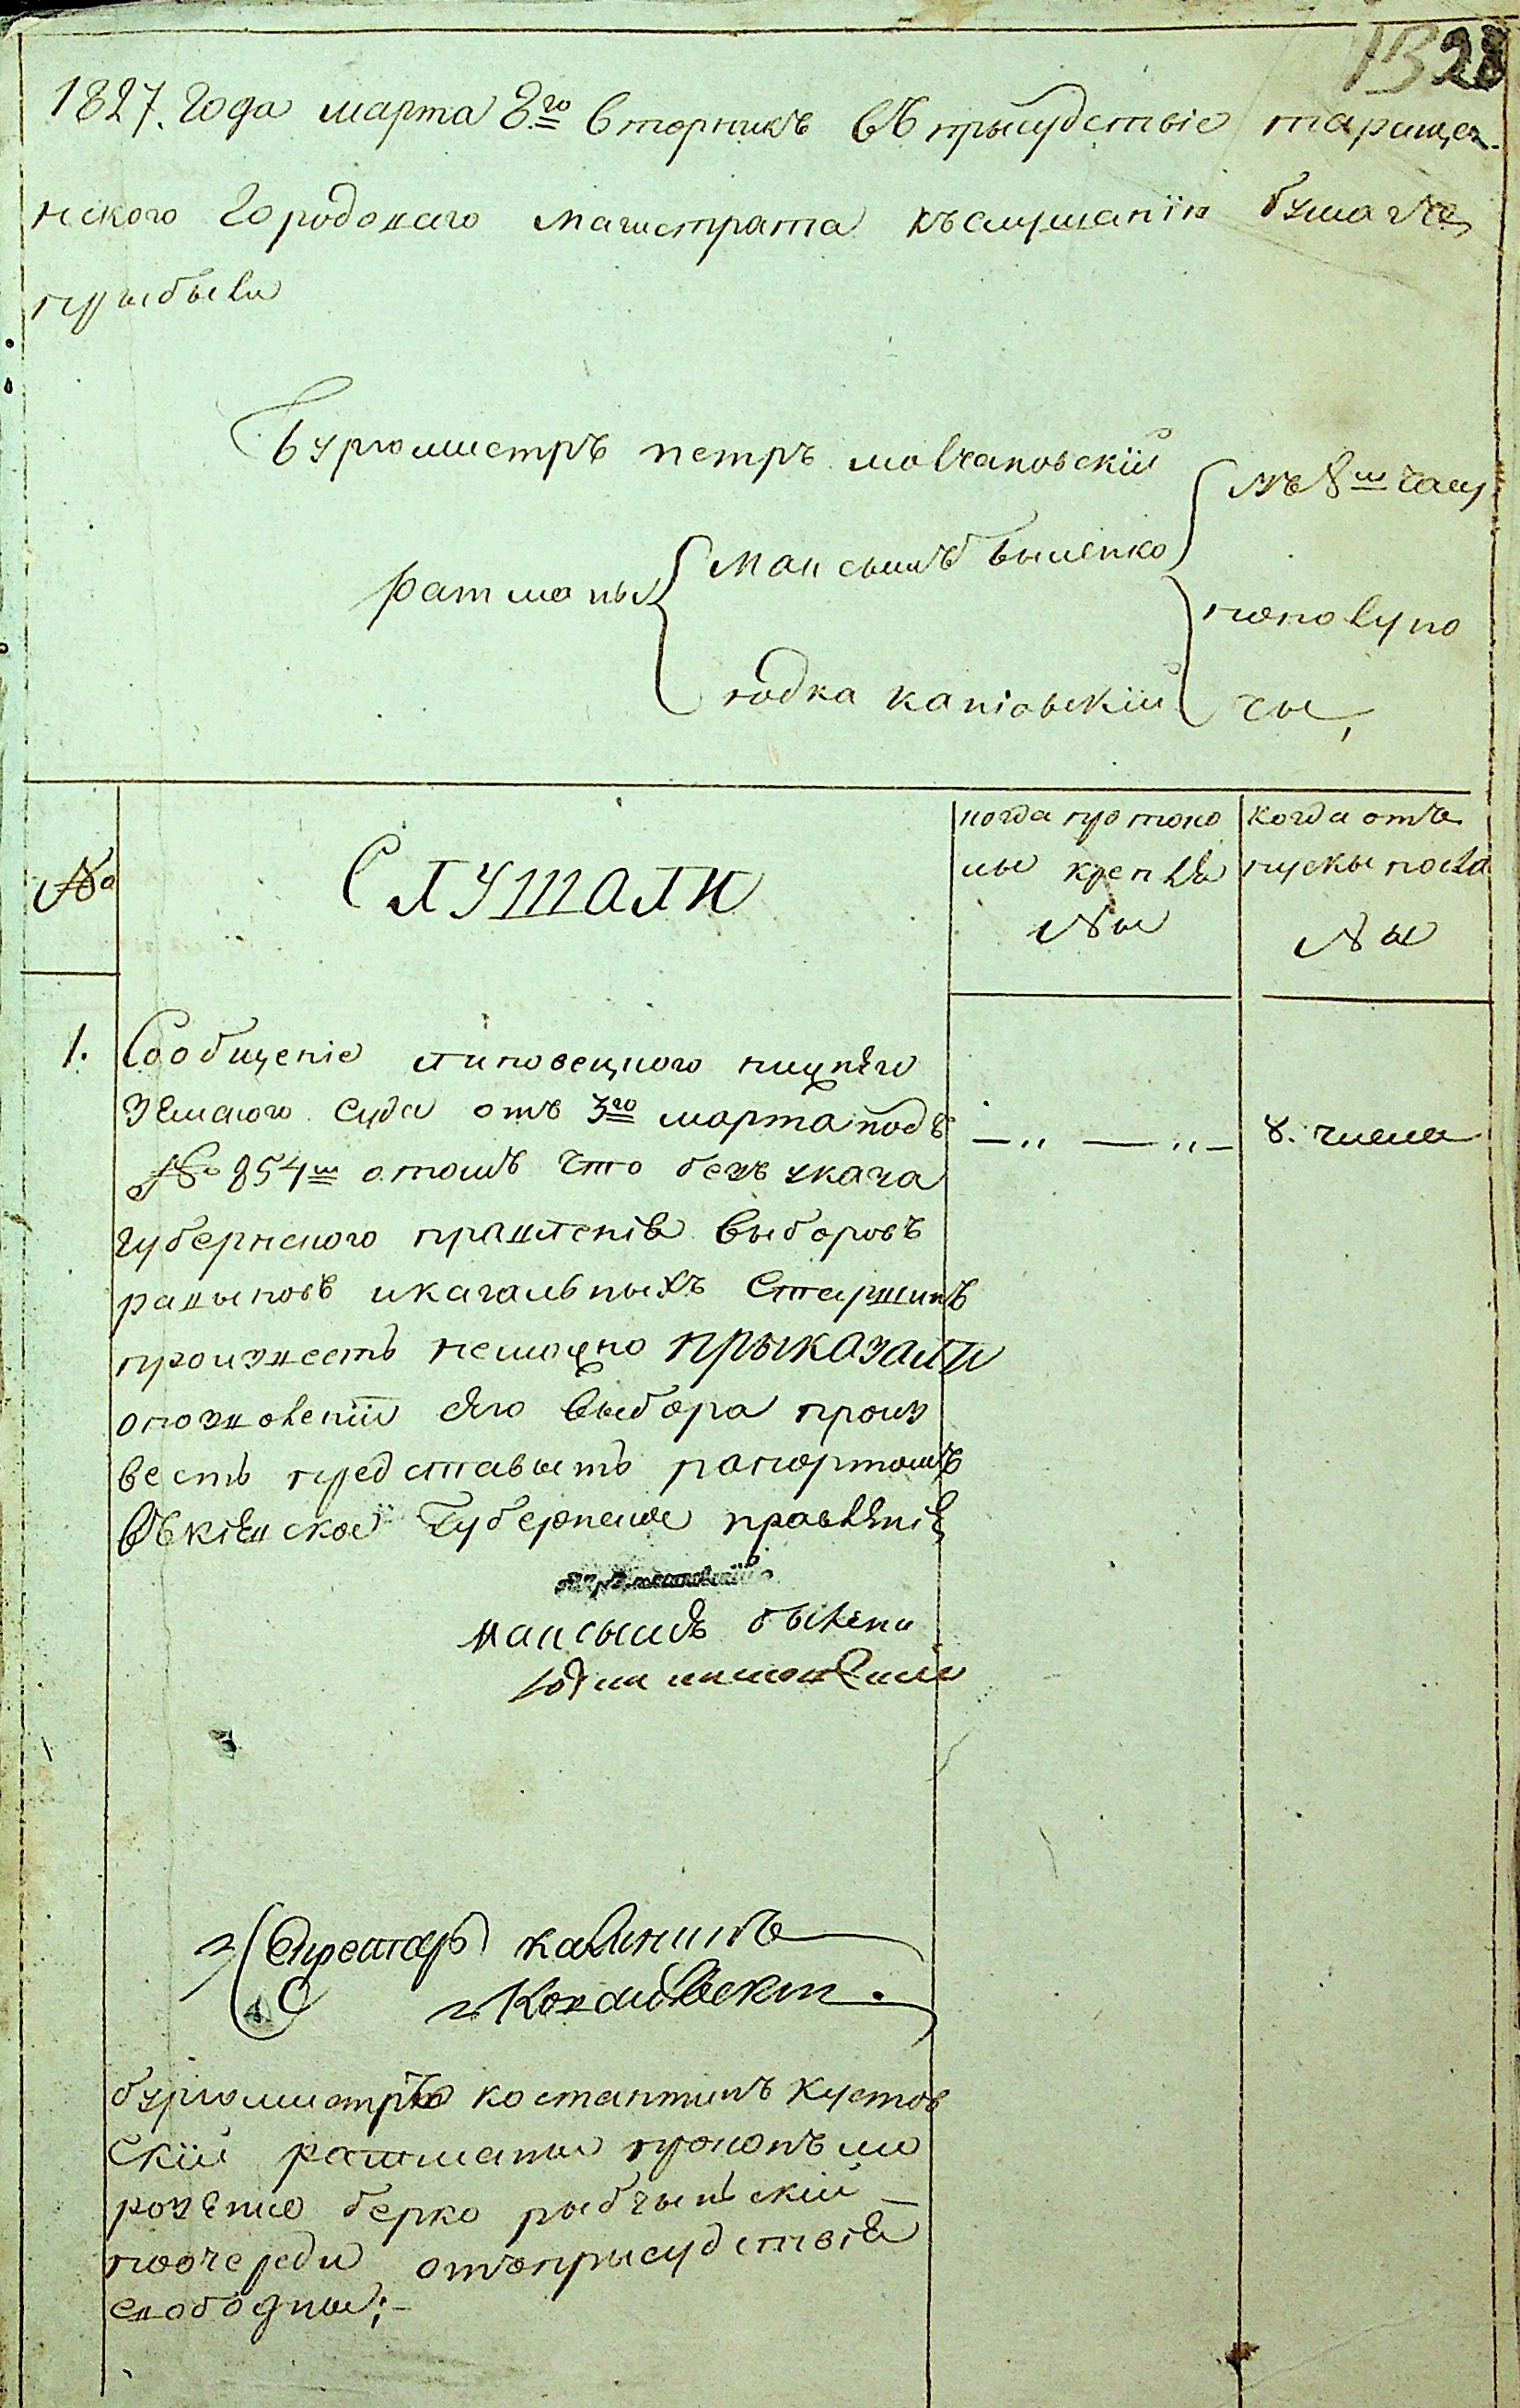 28
1827. Года марта 8го вторникъ въ прысудствіе тараща
нского Городоваго магистрата къ слушанію бумагъ
прыбыли
Бургомистръ петръ молчановскій
въ 8м часу
ратманы
максымъ быленко
пополуно
юдка каніовскій
чы,
№
Слушали
когда протоко
лы крепля
ны
когда отъ
пускы посла
ны
1.
Сообщеніе липовецкого нижняго
земского суда отъ 3го марта подъ
№ 854м о томъ что безъ указа
губернского правленія выборовъ
равыновъ и кагальныхъ Старшинъ
произвесть неможно прыказали
о позволеніи сего выбора произ
весть представыть рапортомъ
въ кіевское Губернское правленіе
— „ — „ —
8. числа
максымъ быленк
Секретарь калинишъ
бургомистръ костантинъ кустов
скій ратманы прокопъ мо
розенко берко рыбчынскій —
поочереди отъ прысудствія
свободны; —